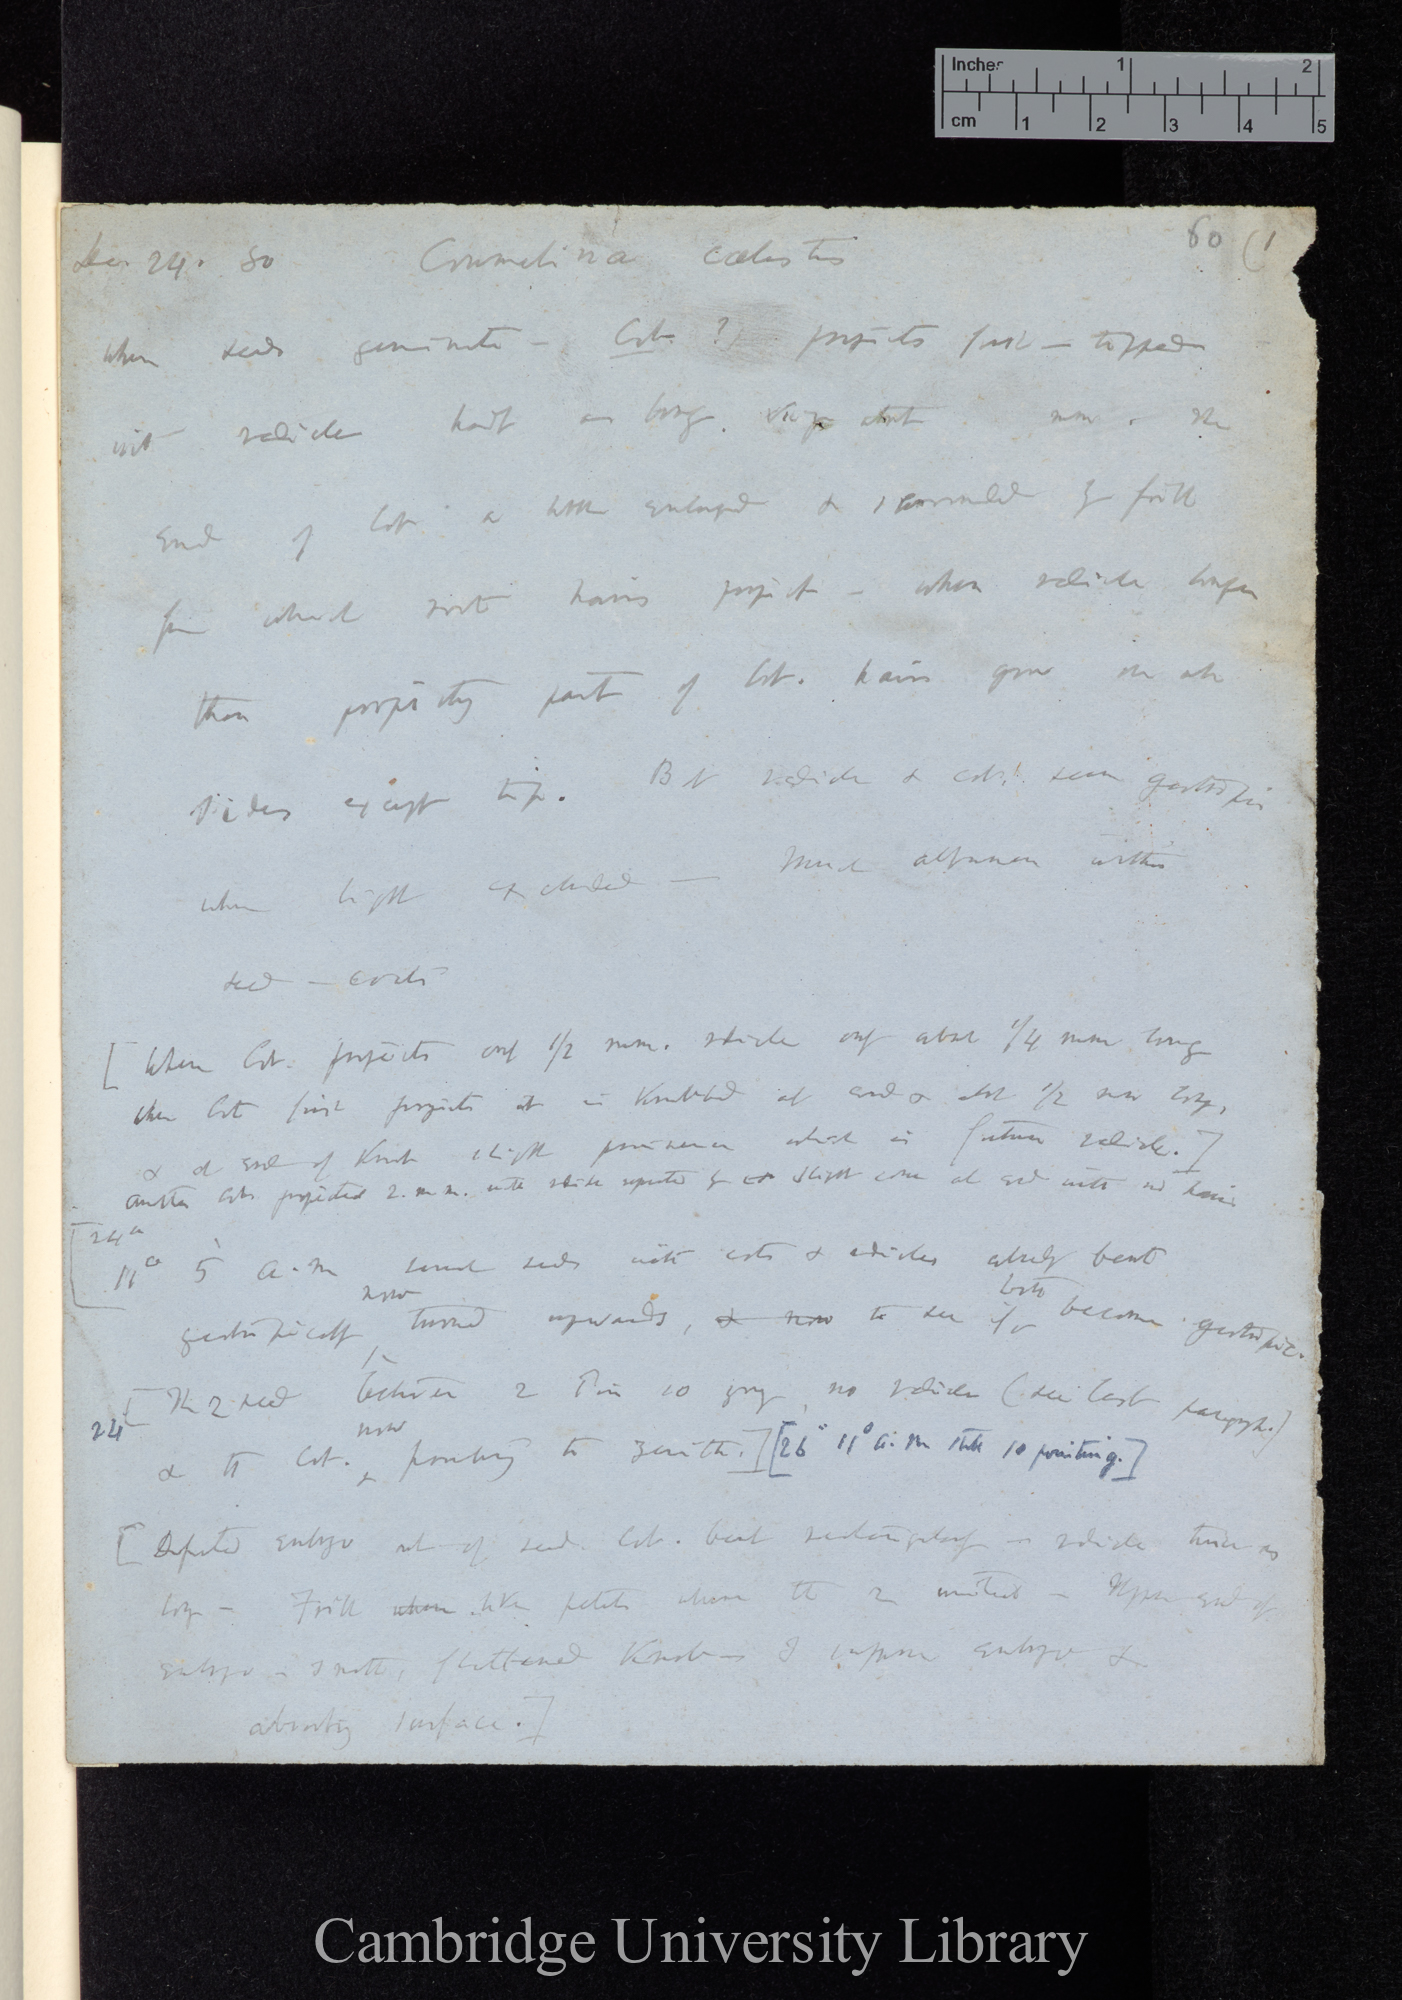 Inches 1 2
cm 1 2 3 4 5
60 (1
Dec. 24. 80 Commelina cœlestis
When seeds germinate — Cot. ? projects first — tipped
with radicle half as long. mm. The
End of Cot a little enlarged & surrounded by frill
from which root hairs project — when radicle longer
than projecting part of Cot. hairs grow on all
sides except tip. But radicle & cot. seem geotropic
when light excluded — Much albumen within
seed-coats
[When Cot. projects only 1/2 mm. radicle only about 1/4 mm long
When Cot first projects it is knobbed at end & about 1/2 mm long,
& at end of knob slight prominence which is future radicle.]
Another Cot. projected 2. m.m. with radicle represented by slight cone at end with no hairs
[24th
11° 5' a.m several seeds with cots & radicles already bent
geotropically now turned upwards, & now to see if both become geotropic.
24 [The 2 seed between 2 Pins so young, no radicle (see last paragraph.)
& the Cot. now pointing to zenith.] [26th 11° a.m still so pointing.]
[Dissected embryo out of seed. Cot. bent rectangularly — radicle twice as
long — Frill when like petals where the 2 united — Upper end of
embryo — smooth, flattened knob — I suppose embryo &
absorbing surface.]
Cambridge University Library